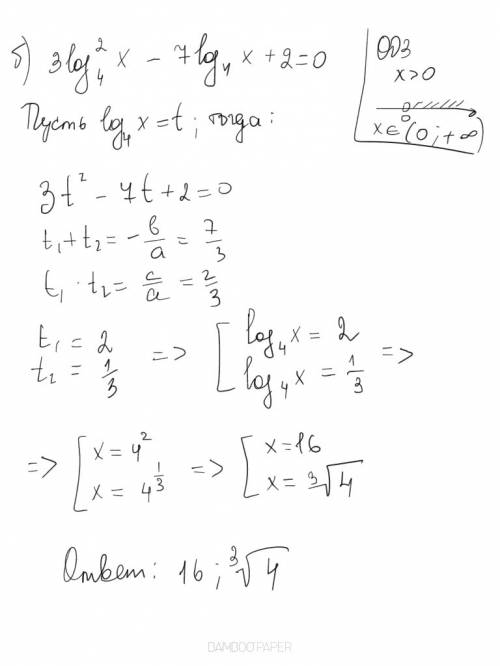 б) 3log₄²x − 7log₄x + 2 = 0
ОДЗ
x > 0
0
x ∈ (0; +∞)
Пусть log₄x = t; тогда:
3t² − 7t + 2 = 0
t₁ + t₂ = −b/a = 7/3
t₁ · t₂ = c/a = 2/3
t₁ = 2
t₂ = 1/3
=> [ log₄x = 2
log₄x = 1/3 =>
=> [ x = 4²
x = 4^(1/3)
=> [ x = 16
x = ³√4
Ответ: 16; ³√4
BAMBOOPAPER